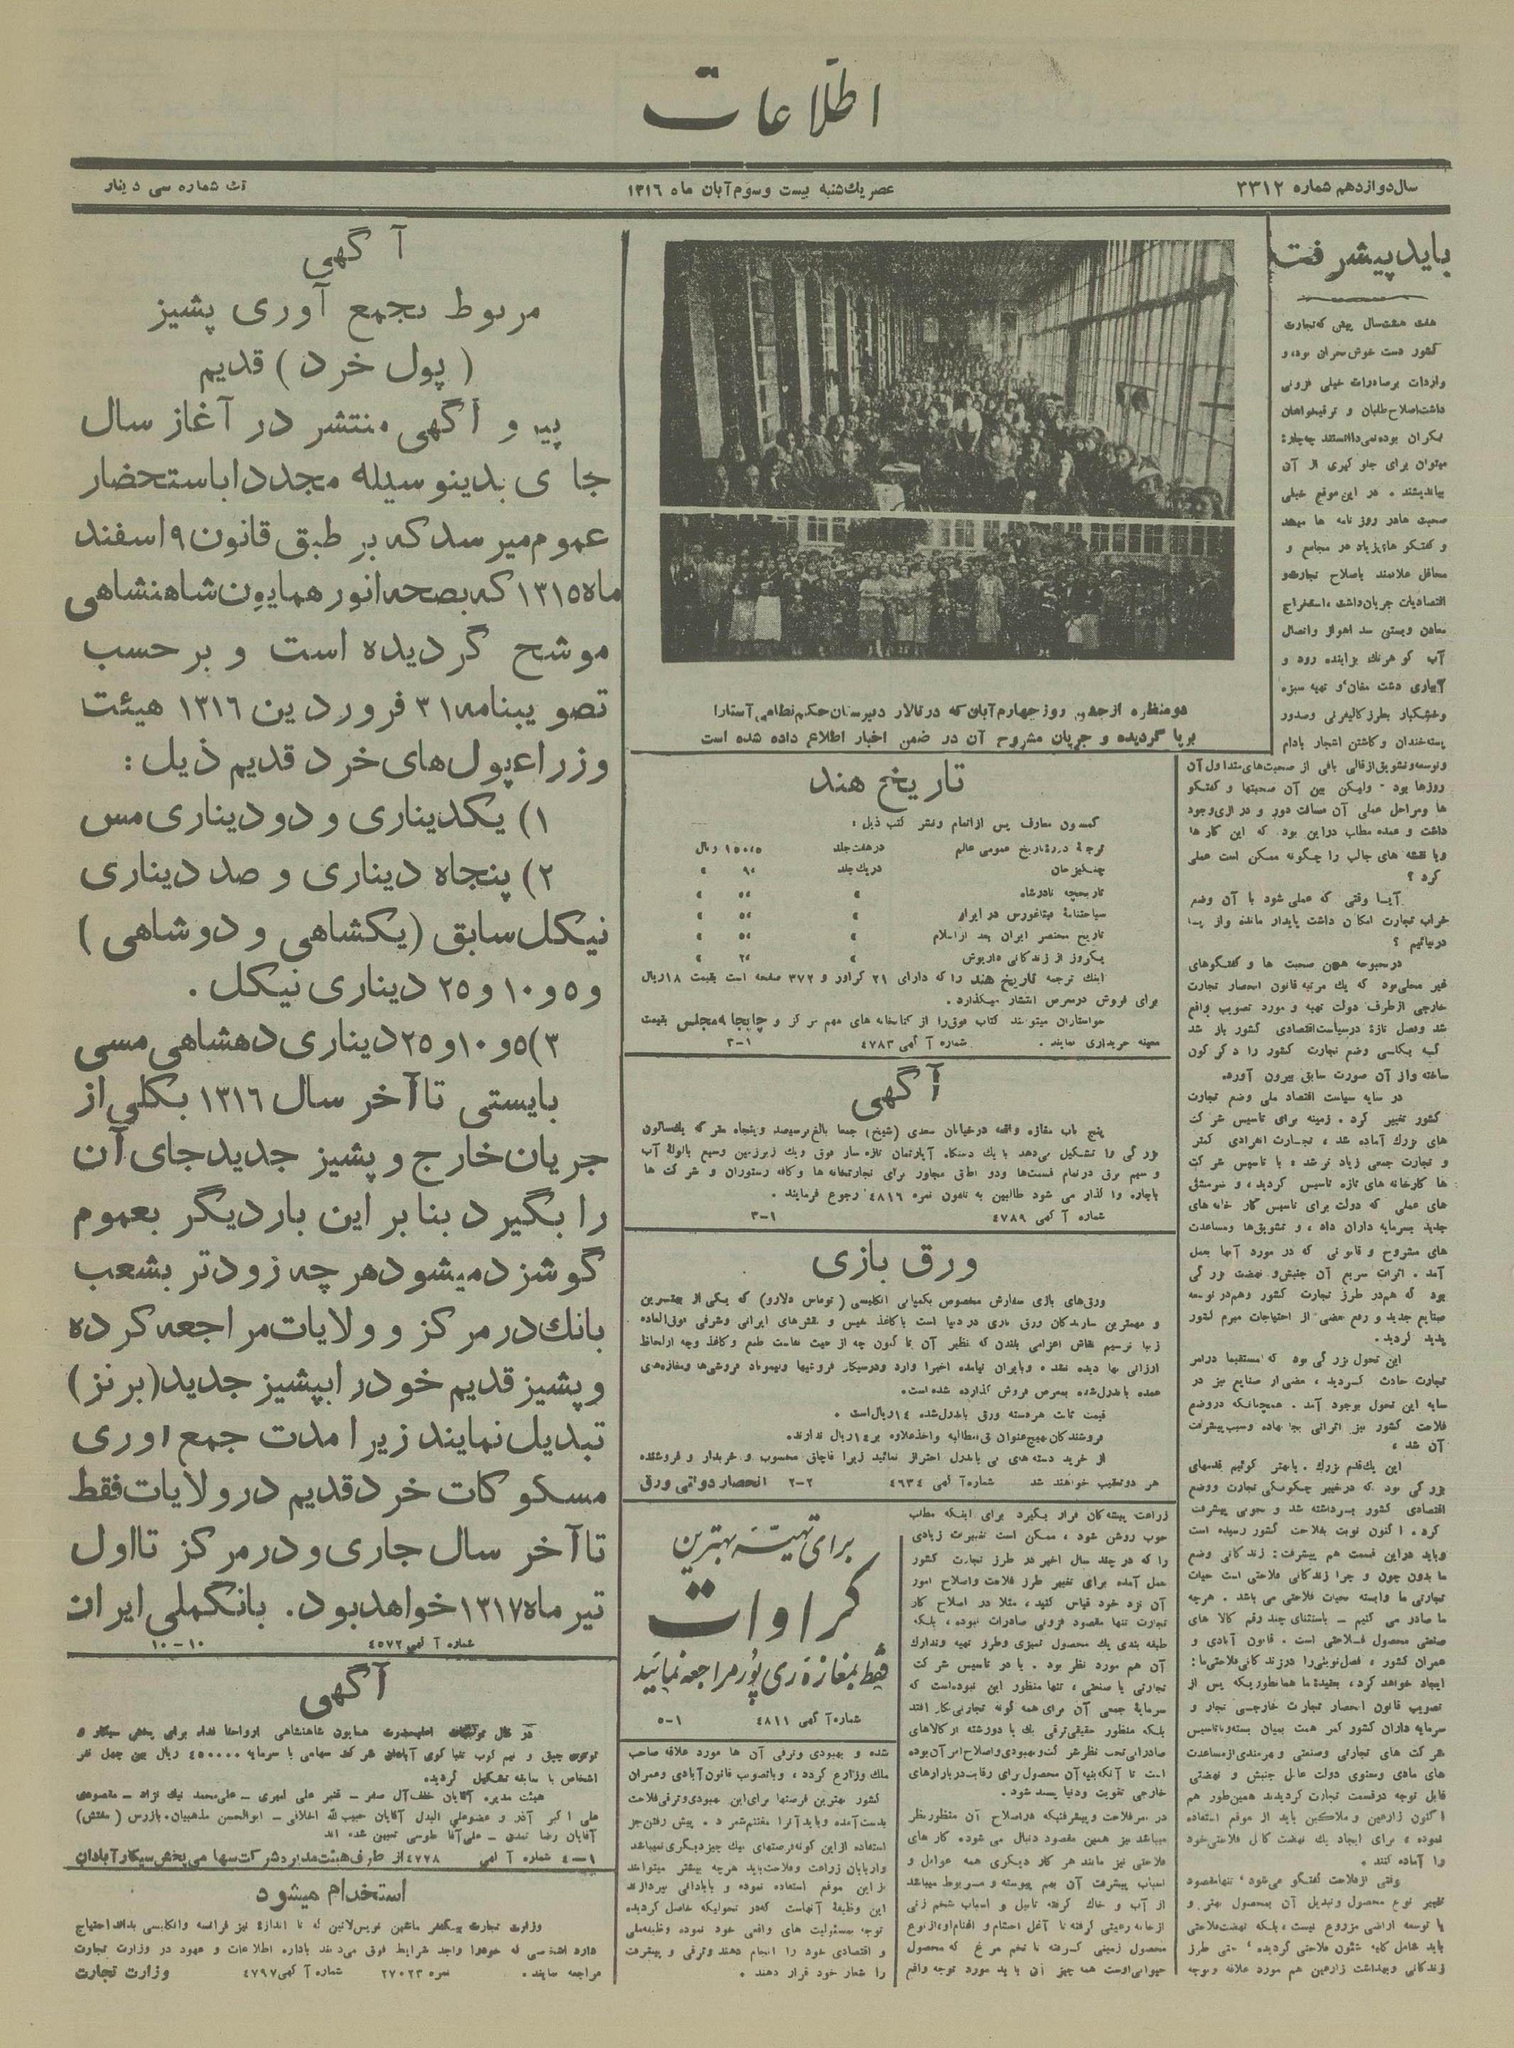 اطلاعات
سال دوازدهم شماره ۳۳۱۲
عصر یک‌شنبه بیست و سوم آبان ماه ۱۳۱۶
تک شماره سی دینار
باید پیش رفت
هفت هشت سال پیش که تجارت
کشور دست خوش بحران بود، و
واردات بر صادرات خیلی فزونی
داشت اصلاح طلبان و ترقیخواهان
نگران بوده نمی‌دانستند چه چاره
میتوان برای جلو گیری از آن
بیاندیشند . در این موقع خیلی
صحبت ها در روز نامه ها میشد
و گفتگو های زیاد در مجامع و
محافل علاقمند باصلاح تجارت و
اقتصادیات جریان داشت ، استخراج
معادن و بستن سد اهواز و اتصال
آب کوهرنگ بزاینده رود و
آبیاری دشت مغان و تهیه سبزه
و خشکبار بطرز کالیفرنی و صدور
پسته خندان و کاشتن اشجار بادام
و توسعه و تشویق از قالی بافی از صحبت‌های متداول آن
روزها بود - ولیکن بین آن صحبتها و گفتگو
ها و مراحل عملی آن مسافت دور و درازی وجود
داشت و عمده مطلب در این بود که این کار ها
و یا نقشه های جالب را چگونه ممکن است عملی
کرد ؟
آیا وقتی که عملی شود با آن وضع
خراب تجارت امکان داشت پایدار مانده و از پا
در نیائیم ؟
در بحبوحه همین صحبت ها و گفتگوهای
غیر عملی بود که یک مرتبه قانون انحصار تجارت
خارجی از طرف دولت تهیه و مورد تصویب واقع
شد و فصل تازه در سیاست اقتصادی کشور باز شد
که بکلی وضع تجارت کشور را دگرگون
ساخته و از آن صورت سابق بیرون آورد.
در سایه سیاست اقتصاد ملی وضع تجارت
کشور تغییر کرد . زمینه برای تاسیس شرکت
های بزرگ آماده شد ، تجارت انفرادی کمتر
و تجارت جمعی زیاد تر شد ، با تاسیس شرکت
ها کارخانه های تازه تاسیس گردید ، و
های عملی که دولت برای تاسیس کار خانه های
جدید بسرمایه داران داد ، و تشویق‌ها و مساعدت
های مشروع و قانونی که در مورد آنها بعمل
آمد . اثرات سریع آن جنبش و نهضت بزرگی
بود که هم در طرز تجارت کشور و هم در توسعه
صنایع جدید و رفع بعضی از احتیاجات مبرم کشور
پدید گردید.
این تحول بزرگی بود که مستقیما در امر
تجارت حادث گردید ، بعضی از صنایع نیز در
سایه این تحول بوجود آمد . همچنانکه در وضع
فلاحت کشور نیز اثراتی بخشیده و سبب پیشرفت
آن شد ،
این یک قدم بزرگ . یا بهتر گوئیم قدمهای
بزرگی بود که در تغییر چگونگی تجارت و وضع
اقتصادی کشور برداشته شد و بخوبی پیشرفت
کرد . اکنون نوبت بفلاحت کشور رسیده است
و باید در این قسمت هم پیشرفت: زندگانی وضع
ما بدون چون و چرا زندگانی فلاحتی است حیات
تجارتی ما وابسته بحیات فلاحتی می باشد . هرچه
ما صادر می کنیم - باستثنای چند رقم کالا های
صنعتی محصول فلاحتی است . قانون آبادی و
عمران کشور ، فصل نوینی را در زندگانی فلاحتی ما
ایجاد خواهد کرد ، بعقیدهٔ ما همانطوریکه پس از
تصویب قانون انحصار تجارت خارجی تجار و
سرمایه داران کشور کمر همت بمیان بسته و با تاسیس
شرکت های تجارتی وصنعتی و بهرمندی از مساعدت
های مادی و معنوی دولت عامل جنبش و نهضتی
قابل توجه در قسمت تجارت گردیدند همین‌طور هم
اکنون زارعین و ملاکین باید از موقع استفاده
نموده ، برای ایجاد یک نهضت کامل فلاحتی خود
را آماده کنند .
وقتی از فلاحت گفتگو می‌شود ، تنها مقصود
تغییر نوع محصول و تبدیل آن بمحصول بهتر و
یا توسعه اراضی مزروع نیست ، بلکه نهضت فلاحتی
باید شامل کلیه شئون فلاحتی گردیده ، حتی طرز
زندگانی و بهداشت زارعین هم مورد علاقه و توجه
دو منظره از جشن روز چهارم آبان که در تالار دبیرستان حکیم نظامی آستارا
برپا گردیده و جریان مشروح آن در ضمن اخبار اطلاع داده شده است
تاریخ هند
کمسیون معارف پس از اتمام و نشر کتب ذیل :
ترجمهٔ دورهٔ تاریخ عمومی عالم در هفت جلد ریال
چنگیز خان در یک جلد
تاریخچه نادرشاه
سیاحتنامهٔ فیثاغورس در ایران
تاریخ مختصر ایران بعد از اسلام
یکروز از زندگانی داریوش
اینک ترجمه تاریخ هند را که دارای ۲۱ گراور و ۳۷۲ صفحه است بقیمت ۱۸ ریال
برای فروش در معرض انتشار میگذارد .
خواستاران میتوانند کتاب فوق را از کتابخانه های مهم مرکز و چاپخانه مجلس بقیمت
معینه خریداری نمایند . شماره آگهی ۴۷۸۳ ۳-۱
آگهی
پنج باب مغازه واقعه در خیابان سعدی (شیخ) جمعا بالغ بر سیصد و پنجاه متر که یک سالون
بزرگی را تشکیل می‌دهد با یک دستگاه آپارتمان تازه ساز فوق و یک زیرزمین وسیع با لولهٔ آب
و سیم برق در تمام قسمت‌ها و دو اطاق مجاور برای تجارتخانه ها و کافه رستوران و شرکت ها
باجاره وا گذار می شود طالبین به تلفون نمره ۴۸۱۶ رجوع فرمایند .
شماره آگهی ۴۷۸۹ ۳-۱
ورق بازی
ورق‌های بازی سفارش مخصوص بکمپانی انگلیسی (توماس دلارو) که یکی از بهترین
و مهمترین سازندگان ورق بازی در دنیا است با کاغذ نفیس و نقش‌های ایرانی و شرقی فوق‌العاده
زیبا ترسیم نقاش اعزامی بلندن که نظیر آن تا کنون چه از حیث نفاست طبع و کاغذ و چه از لحاظ
ارزانی بها دیده نشده و بایران نیامده اخیرا وارد و در سیگار فروشیها و لیموناد فروشی‌ها و مغازه‌های
عمده باندرل شده بمعرض فروش گذارده شده است.
قیمت ثابت هر دسته ورق باندرل شده ۱۴ ریال است .
فروشندگان بهیچ‌عنوان حق مطالبه و اخذ علاوه بر ۱۴ ریال ندارند.
از خرید دسته های بی باندرل احتراز نمائید زیرا قاچاق محسوب و خریدار و فروشنده
هر دو تعقیب خواهند شد شماره آگهی ۴۶۳۴ ۲-۲ انحصار دولتی ورق
زراعت پیشه‌گان قرار بگیرد برای اینکه مطلب
خوب روشن شود ، ممکن است تغییرات زیادی
را که در چند سال اخیر در طرز تجارت کشور
بعمل آمده برای تغییر طرز فلاحت و اصلاح امور
آن نزد خود قیاس کنید ، مثلا در اصلاح کار
تجارت تنها مقصود فزونی صادرات نبوده ، بلکه
طبقه بندی یک محصول تمیزی و طرز تهیه و تدارک
آن هم مورد نظر بود . یا در تاسیس شرکت
تجارتی یا صنعتی ، تنها منظور این نبوده است که
سرمایهٔ جمعی آن برای همه گونه تجارتی بکار افتد
بلکه منظور حقیقی ترقی یک یا دو رشته از کالاهای
صادراتی تحت نظر شرکت و بهبودی و اصلاح امر آن بوده
است تا آنکه بنیه آن محصول برای رقابت در بازارهای
خارجی تقویت و دنیا پسند شود .
در امر فلاحت و پیشرفتیکه در اصلاح آن منظور نظر
میباشد نیز همین مقصود دنبال می شود. کار های
فلاحتی نیز مانند هر کار دیگری همه عوامل و
اسباب پیشرفت آن بهم پیوسته و مربوط میباشد
از آب و خاک گرفته تا بیل و اسباب شخم زنی
از خانه رعیتی گرفته تا آغل احشام و اغنام او، از نوع
محصول زمینی گرفته تا تخم مرغ که محصول
حیوانی اوست همه چیز آن باید مورد توجه واقع
برای تهیّه بهترین
کراوات
فقط بمغازه ری پور مراجعه نمائید
شماره آگهی ۴۸۱۱ ۵-۱
شده و بهبودی و ترقی آن ها مورد علاقه صاحب
ملک و زارع گردد ، و با تصویب قانون آبادی و عمران
کشور بهترین فرصتها برای این بهبودی و ترقی فلاحت
بدست آمده و باید آنرا مغتنم شمرد . پیش رفتن جز
استفاده از این گونه فرصتهای نیک چیز دیگری نمیباشد
و اربابان زراعت و فلاحت باید هرچه بیشتر میتوانند
از این موقع استفاده نموده و بآبادانی بپردازند
این وظیفهٔ آنهاست که در تحولیکه حاصل گردیده
توجه بمسئولیت های واقعی خود نموده، وظیفه ملی
و اقتصادی خود را انجام دهند و ترقی و پیشرفت
را شعار خود قرار دهند .
آگهی
مربوط بجمع آوری پشیز
(پول خرد) قدیم
پیرو آگهی منتشر در آغاز سال
جاری بدینوسیله مجددا باستحضار
عموم میرسد که بر طبق قانون ۹ اسفند
ماه ۱۳۱۵ که بصحه انور همایون شاهنشاهی
موشح گردیده است و بر حسب
تصویبنامه ۳۱ فروردین ۱۳۱۶ هیئت
وزراء پول‌های خرد قدیم ذیل :
۱) یکدیناری و دو دیناری مس
۲) پنجاه دیناری و صد دیناری
نیکل سابق (یکشاهی و دوشاهی)
و ۵ و ۱۰ و ۲۵ دیناری نیکل .
۳) ۵ و ۱۰ و ۲۵ دیناری دهشاهی مسی
بایستی تا آخر سال ۱۳۱۶ بکلی از
جریان خارج و پشیز جدید جای آن
را بگیرد بنابر این بار دیگر بعموم
گوشزد میشود هر چه زودتر بشعب
بانک در مرکز و ولایات مراجعه کرده
و پشیز قدیم خود را بپشیز جدید (برنز)
تبدیل نمایند زیرا مدت جمع آوری
مسکوکات خرد قدیم در ولایات فقط
تا آخر سال جاری و در مرکز تا اول
تیر ماه ۱۳۱۷ خواهد بود. بانک ملی ایران
شماره آگهی ۴۵۷۲ ۱۰-۱۰
آگهی
در ظل توجهات اعلیحضرت همایون شاهنشاهی ارواحنا فداه برای پخش سیگار و
توتون چپق و نیم کوب تنباکوی آبادان شرکت سهامی با سرمایه ۴۵۰۰۰۰ ریال بین چهل نفر
اشخاص با سابقه تشکیل گردید.
هیئت مدیره. آقایان خلف آل صفر - قنبر علی امیری - علی محمد نیک نژاد - مقصودی
علی اکبر آذر و عضو علی البدل آقایان حبیب الله اخلاقی - ابوالحسن مذهبیان. بازرس (مفتش)
آقایان رضا تمدن - علی آقا طوسی تعیین شده اند
۴-۱ شماره آگهی ۴۷۷۸ از طرف هیئت مدیره شرکت سهامی پخش سیگار آبادان
استخدام میشود
وزارت تجارت بیکنفر ماشین نویس لاتین که تا اندازه نیز فرانسه و انگلیسی بداند احتیاج
دارد اشخاصی که خود را واجد شرایط فوق می‌دانند باداره اطلاعات و عهود در وزارت تجارت
مراجعه نمایند . نمره ۲۷۰۲۳ شماره آگهی ۴۷۹۷ وزارت تجارت